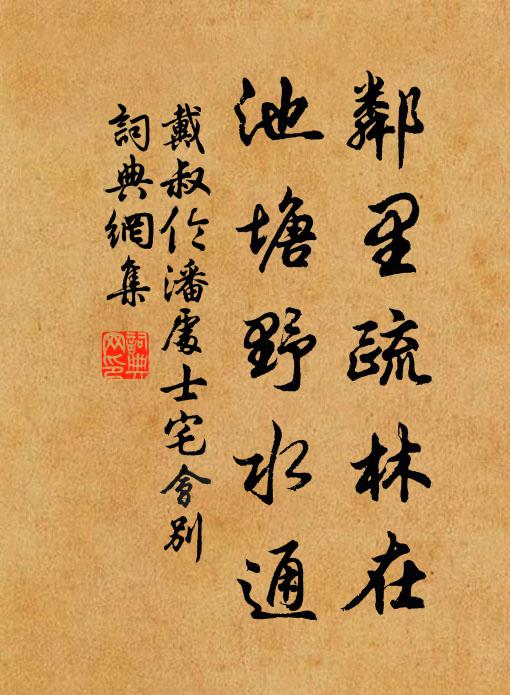 鄰里疏林在
池塘野水通
戴叔伦潘處士宅會別
詞典網集
詞典網印